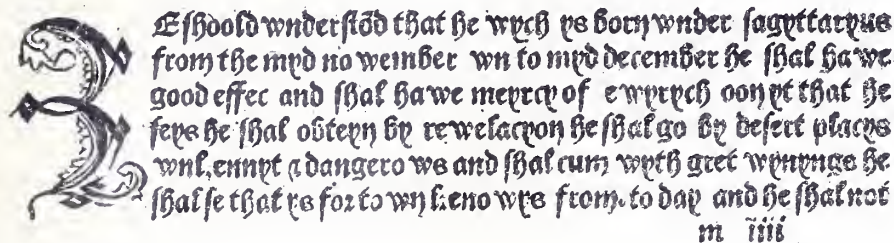 ZE shoold wnderstōd that he wych ys born wnder sagyttaryus
from the myd nowember wn to myd december he shal hawe
good effec and shal hawe meyrcy of ewyrych oon yt that he
seys he shal obteyn by rewelacyon he shal go by desert placys
wnkennyt & dangerows and shal cum wyth gret wynynge he
shal se that ys for to wn kenowys from. to day and he shal not
m iiii